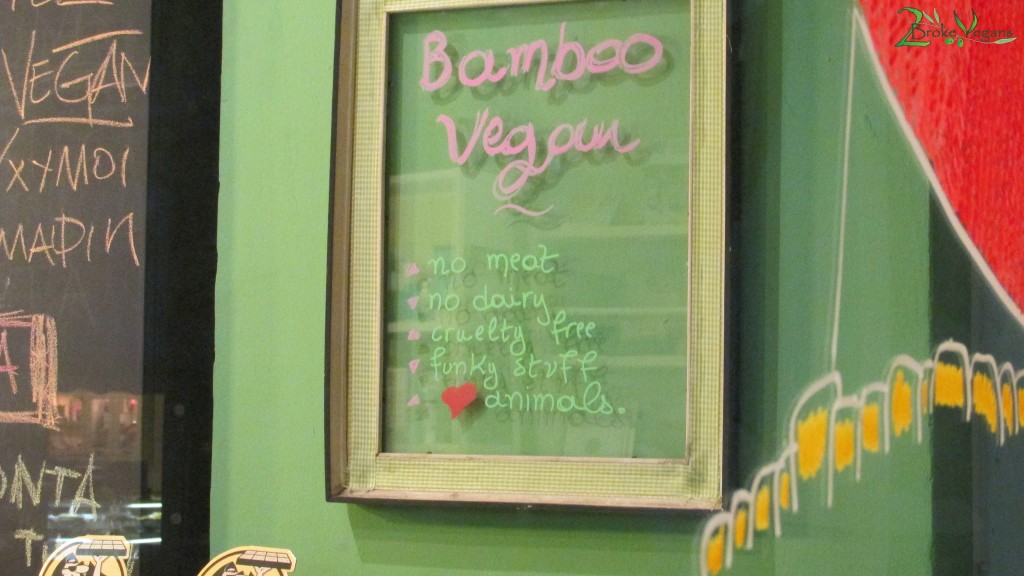 VEGAN
ΧΥΜΟΙ
Bamboo
Vegan
no meat
no dairy
cruelty free
funky stuff
animals.
2 Broke Vegans